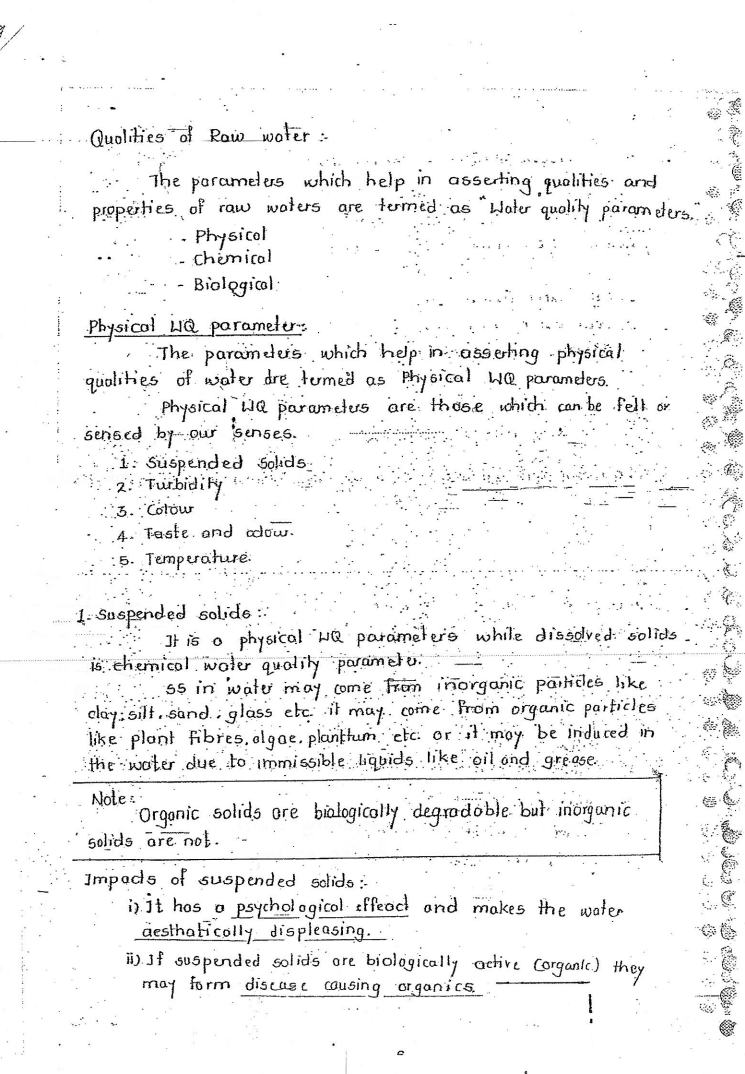 Qualities of Raw water :-
The parameters which help in asserting qualities and
properties of raw waters are termed as "Water quality parameters."
- Physical
- Chemical
- Biological
Physical WQ parameter:-
The parameters which help in asserting physical
qualities of water are termed as Physical WQ parameters.
Physical WQ parameters are those which can be felt or
sensed by our senses.
1. Suspended solids
2. Turbidity
3. Colour
4. Taste and odour.
5. Temperature.
1. Suspended solids :-
It is a physical WQ parameters while dissolved solids
is chemical water quality parameter.
SS in water may come from inorganic particles like
clay, silt, sand, glass etc. it may come from organic particles
like plant fibres, algae, planthum, etc. or it may be induced in
the water due to immissible liquids like oil and grease.
Note:-
Organic solids are biologically degradable but inorganic
solids are not.
Impacts of suspended solids :-
i) It has a psychological effeact and makes the water
aesthatically displeasing.
ii) If suspended solids are biologically active (organic) they
may form disease causing organics